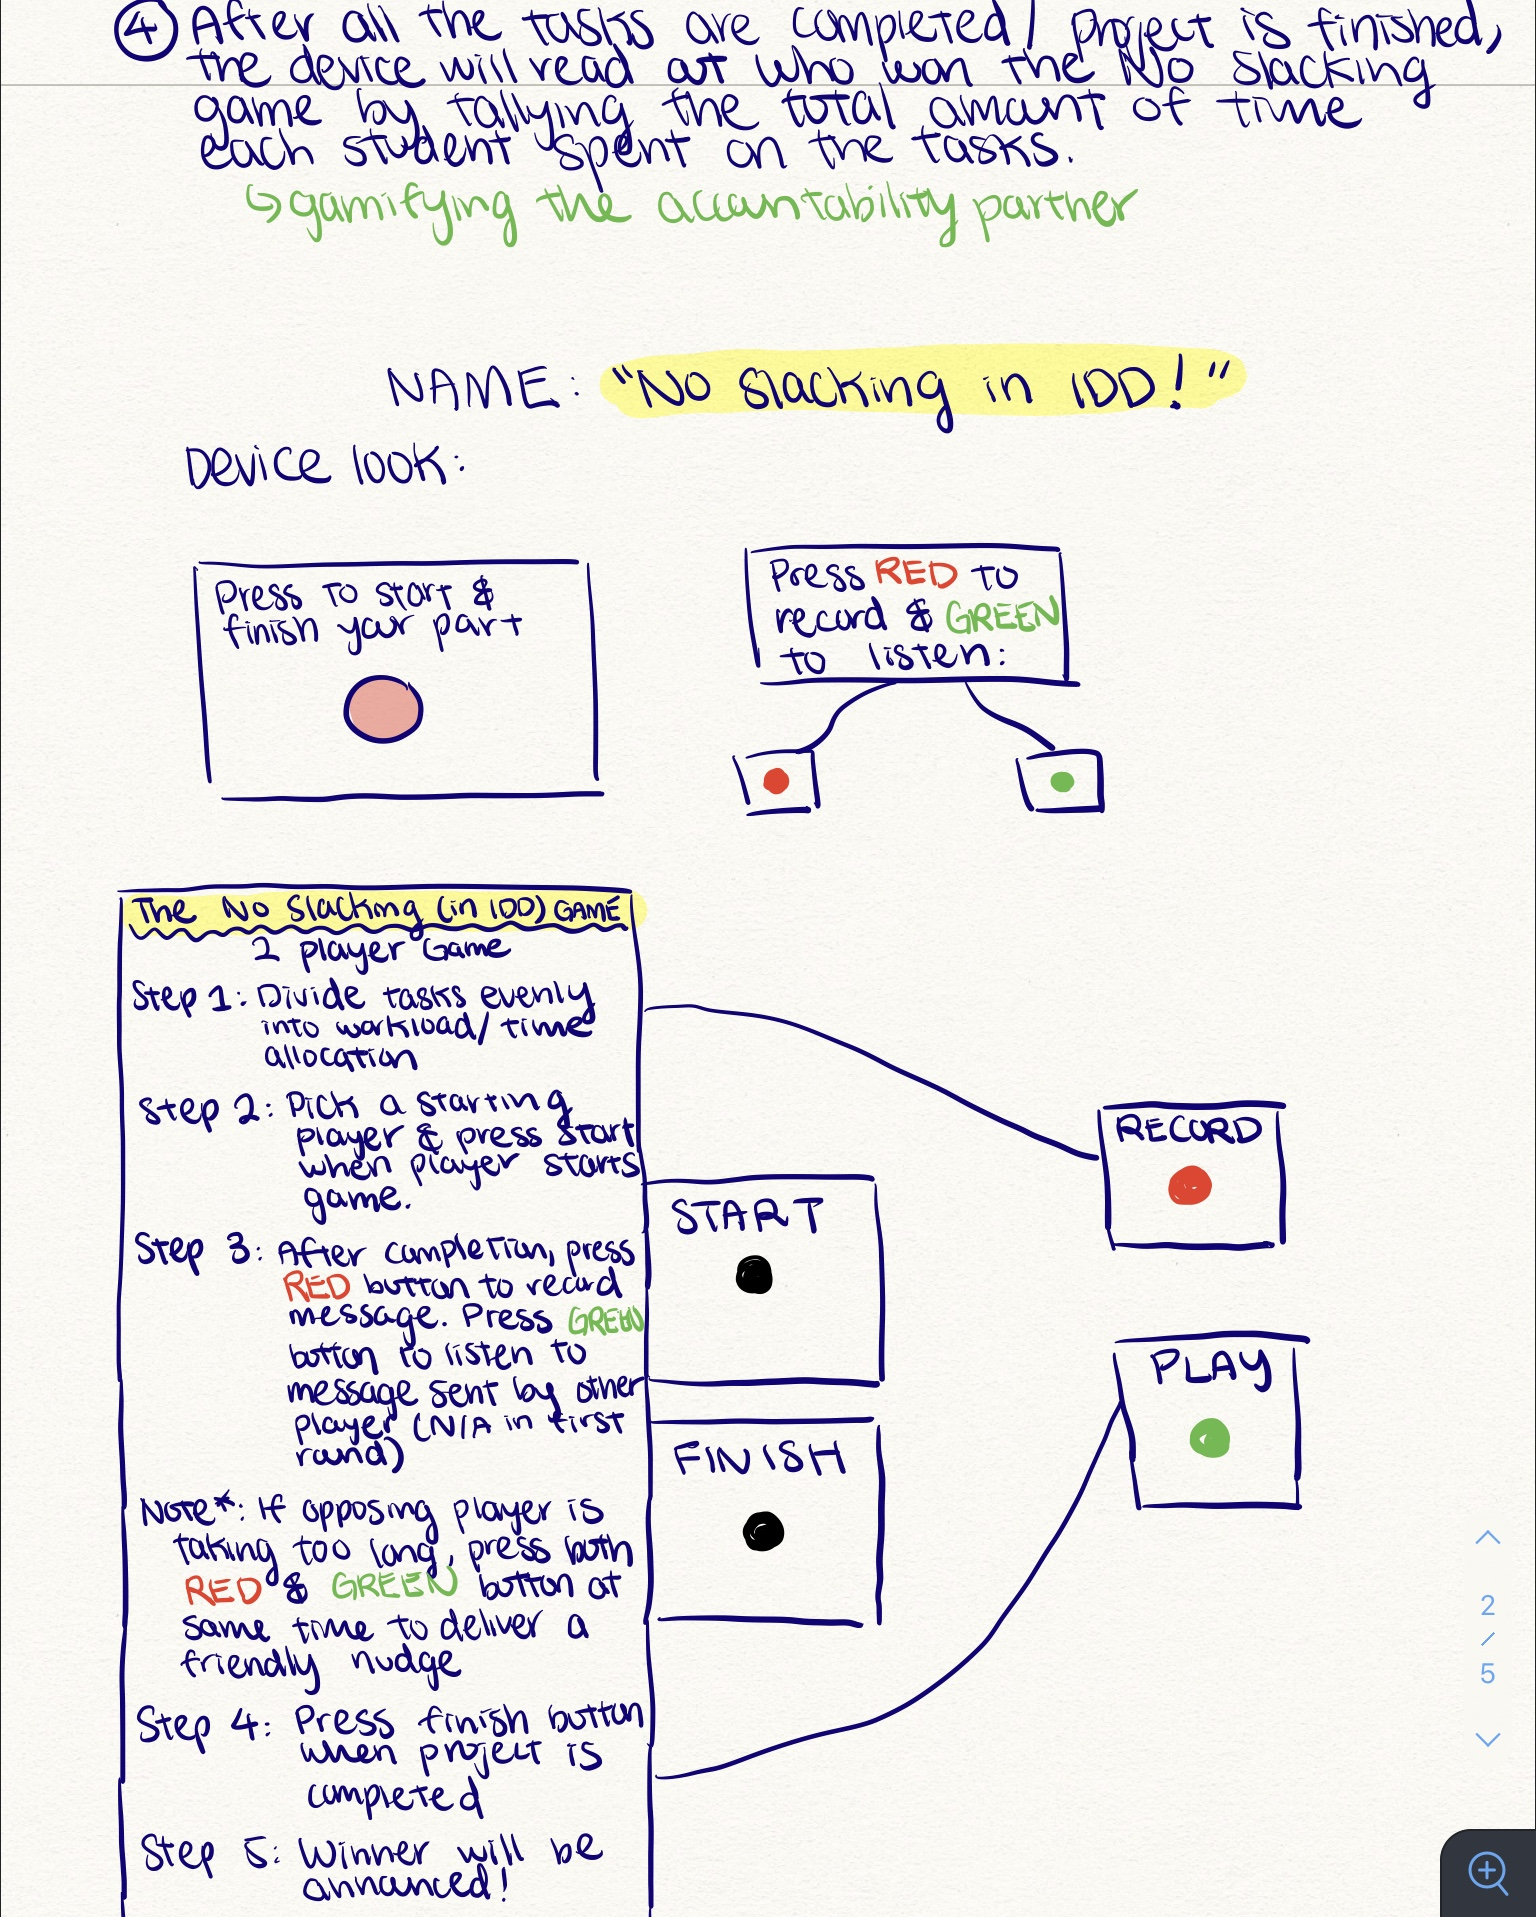 ④ After all the tasks are completed / project is finished,
the device will read out who won the No Slacking
game by tallying the total amount of time
each student spent on the tasks.
↳ gamifying the accountability partner
NAME: "No Slacking in IDD!"
Device look:
Press to start &
finish your part
Press RED to
record & GREEN
to listen:
The No Slacking (in IDD) GAME
2 player Game
Step 1: Divide tasks evenly
into workload/time
allocation
Step 2: Pick a starting
player & press start
when player starts
game.
Step 3: After completion, press
RED button to record
message. Press GREEN
button to listen to
message sent by other
player (N/A in first
round)
Note*: If opposing player is
taking too long, press both
RED & GREEN button at
same time to deliver a
friendly nudge
Step 4: Press finish button
when project is
completed
Step 5: Winner will be
announced!
START
FINISH
RECORD
PLAY
2
/
5